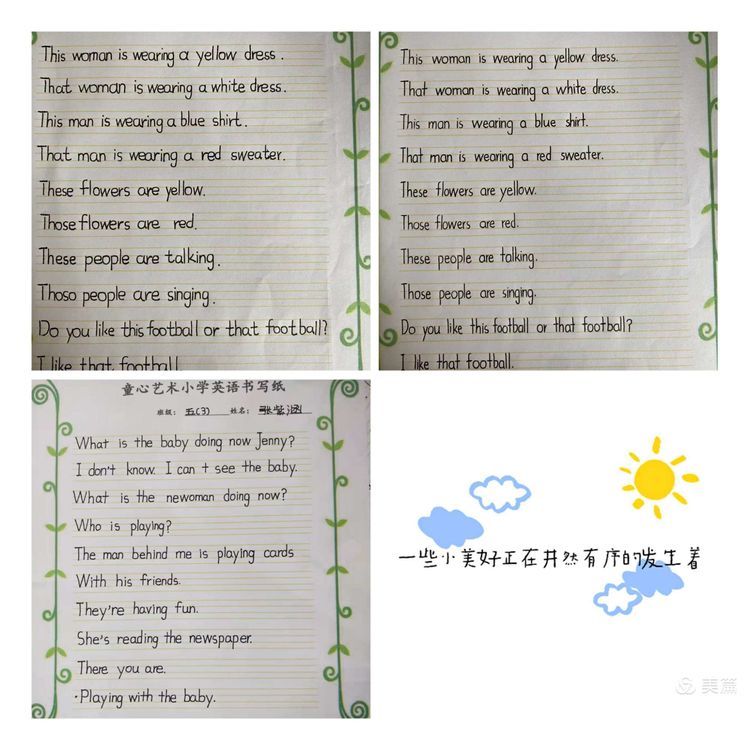 This woman is wearing a yellow dress.
That woman is wearing a white dress.
This man is wearing a blue shirt.
That man is wearing a red sweater.
These flowers are yellow.
Those flowers are red.
These people are talking.
Thoso people are singing.
Do you like this football or that football?
I like that football
This woman is wearing a yellow dress.
That woman is wearing a white dress.
This man is wearing a blue shirt.
That man is wearing a red sweater.
These flowers are yellow.
Those flowers are red.
These people are talking.
Those people are singing.
Do you like this football or that football?
I like that football.
童心艺术小学英语书写纸
班级: 五(3) 姓名: 张紫涵
What is the baby doing now Jenny?
I don't know. I can t see the baby.
What is the newoman doing now?
Who is playing?
The man behind me is playing cards
With his friends.
They're having fun.
She's reading the newspaper.
There you are.
·Playing with the baby.
一些小美好正在井然有序的发生着
美篇